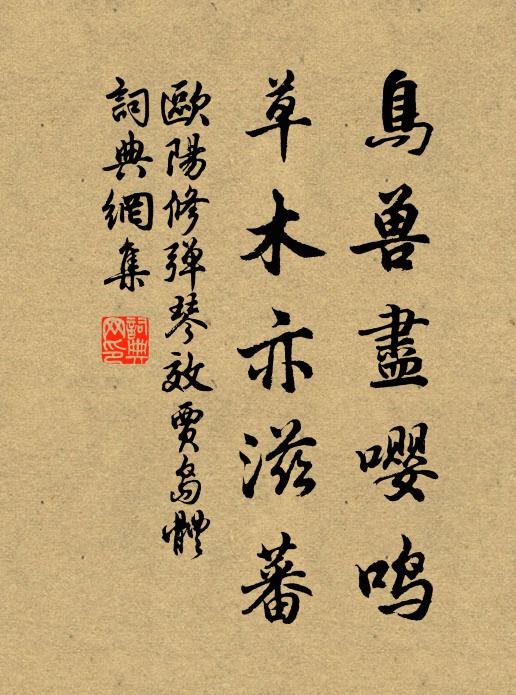 鳥兽盡嚶鸣
草木亦滋蕃
歐陽修弹琴效贾島體
詞典網集
詞典网印